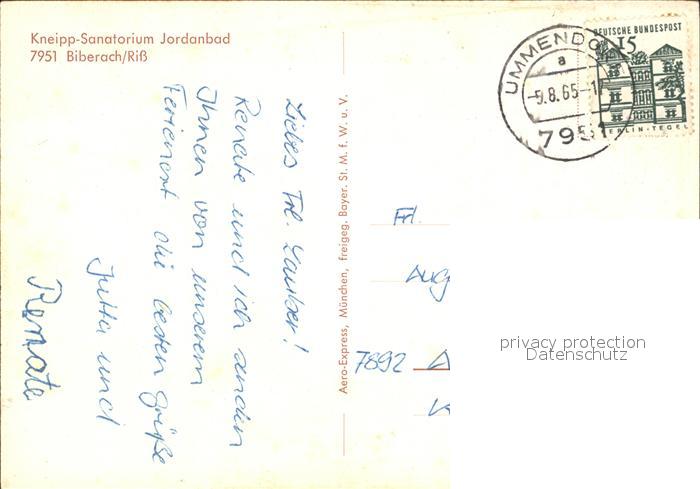 Kneipp-Sanatorium Jordanbad
7951 Biberach/Riß
Liebes Frl. Lauber!
Renate und ich senden
Ihnen von unserem
Ferienort die besten Grüße
Jutta und
Renate
Aero-Express, München, freigeg. Bayer. St. M. f. W. u. V.
UMMENDO
a
-9.8.65-1
7951
DEUTSCHE BUNDESPOST
15
BERLIN-TEGEL
Frl.
Aug
7892
privacy protection
Datenschutz